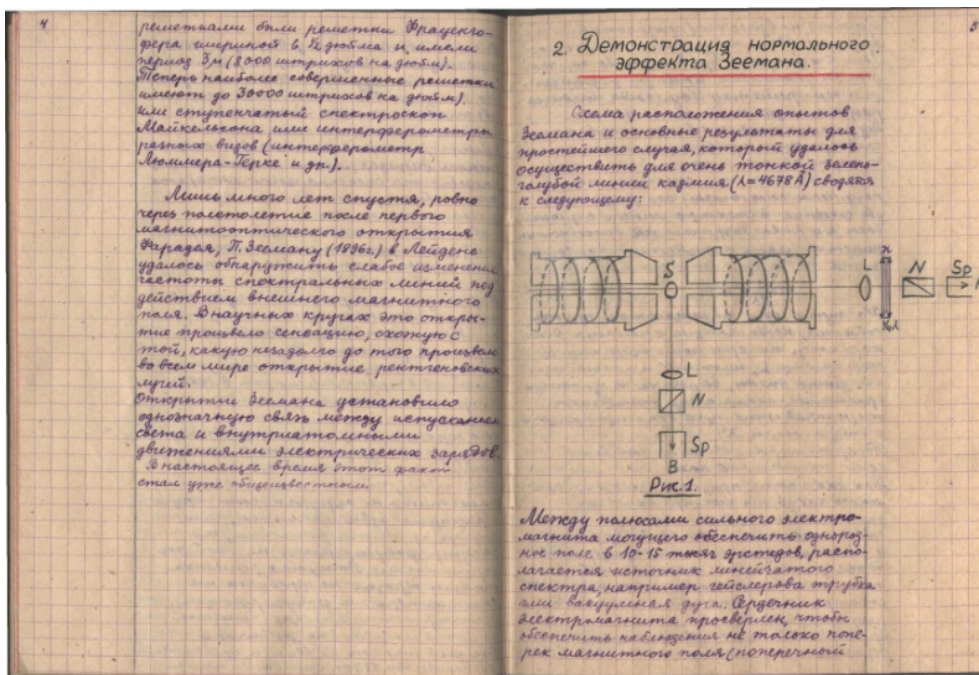 4
решетками были решетки Фраунго-
фера шириной в ½ дюйма и имели
период 3μ (8000 штрихов на дюйм).
Теперь наиболее совершенные решетки
имеют до 30000 штрихов на дюйм).
или ступенчатый спектроскоп
Майкельсона, или интерферометры
разных видов (интерферометр
Люммера-Герке и др.).
Лишь много лет спустя, ровно
через полстолетие после первого
магнитооптического открытия
Фарадея, П. Зееману (1896г.) в Лейдене
удалось обнаружить слабое изменение
частоты спектральных линий под
действием внешнего магнитного
поля. В научных кругах это откры-
тие произвело сенсацию, схожую с
той, какую незадолго до того произвело
во всем мире открытие рентгеновских
лучей.
Открытие Зеемана установило
однозначную связь между испусканием
света и внутриатомными
движениями электрических зарядов.
В настоящее время этот факт
стал уже общеизвестным.
5
2. Демонстрация нормального
эффекта Зеемана.
Схема расположения опытов
Зеемана и основные результаты для
простейшего случая, который удалось
осуществить для очень тонкой зелено-
голубой линии кадмия (λ=4678Å) сводятся
к следующему:
S
L
N
Sp
¼λ
L
N
Sp
B
Рис.1.
Между полюсами сильного электро-
магнита могущего обеспечить однород-
ное поле в 10-15 тысяч эрстедов, распо-
лагается источник линейчатого
спектра, например гейслерова трубка
или вакуумная дуга. Сердечник
электромагнита просверлен, чтобы
обеспечить наблюдения не только попе-
рек магнитного поля (поперечный